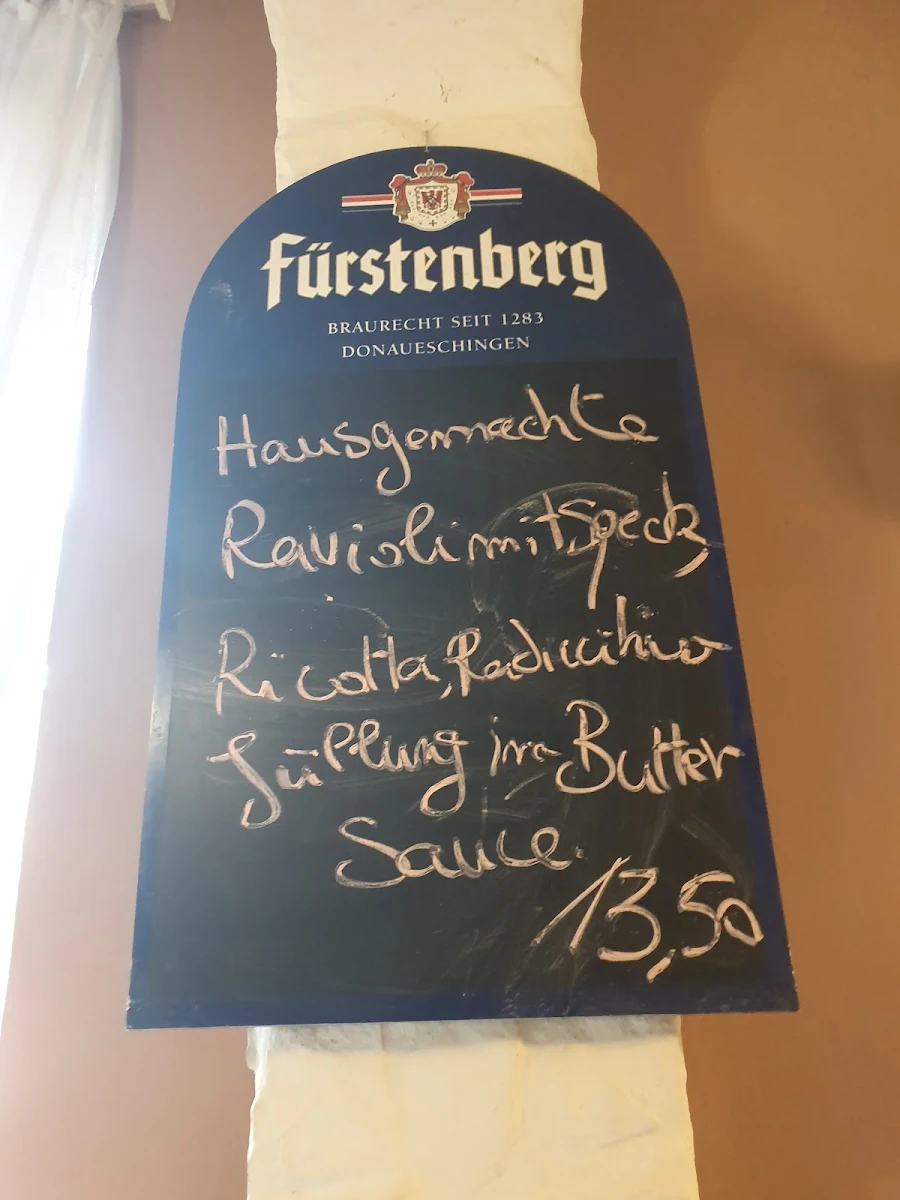 Fürstenberg
BRAURECHT SEIT 1283
DONAUESCHINGEN
Hausgemachte
Ravioli mit Speck,
Ricotta, Radicchio
füllung in Butter
Sauce.
13,50